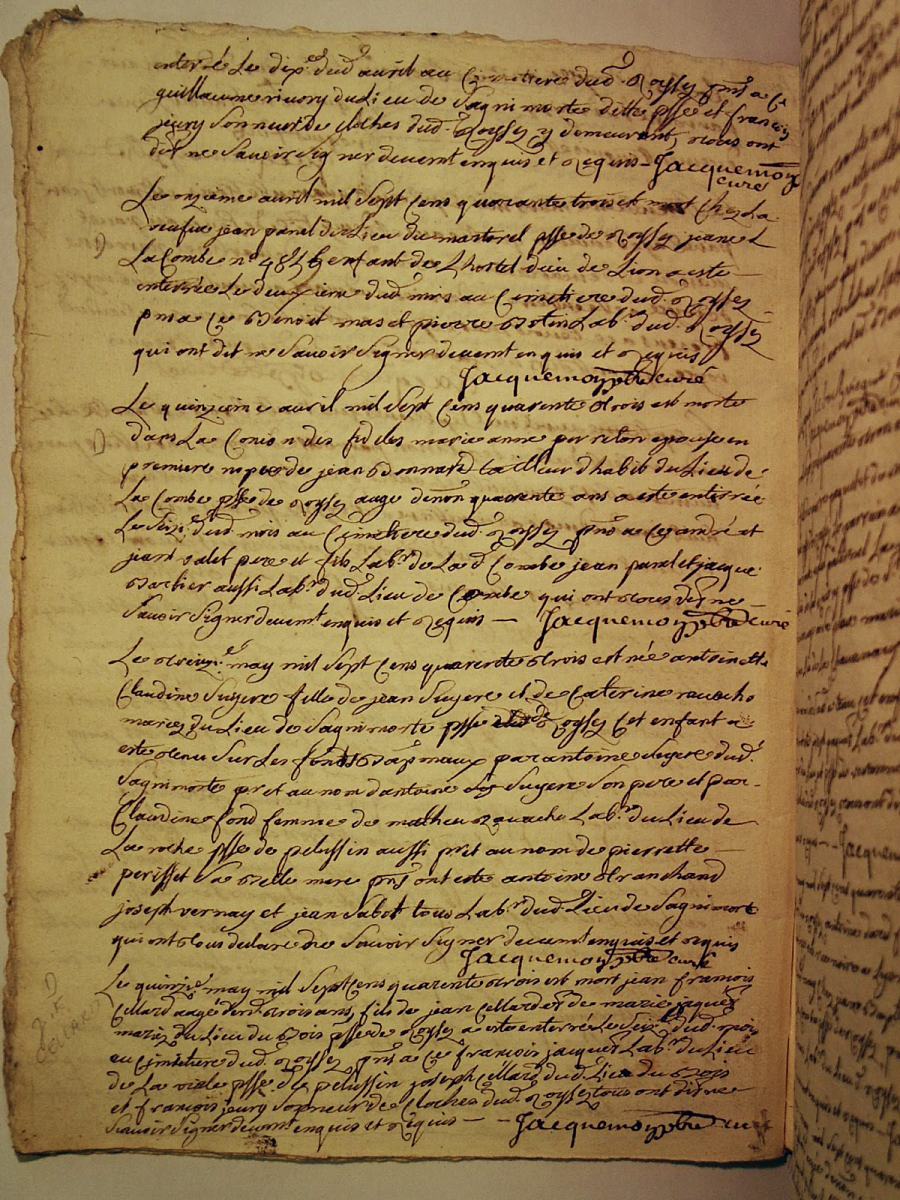 enterré Le dix.e dud avril au Cimetiere dud Roysey pnt a ce
guillaume rivory du Lieu de Sagnimorte ditte psse et francois
jeury Sonneur de cloches dud Roysey y demeurant, nous ont
dit ne Savoir Signer deuemt enquis et Requis – Jacquemon
curé
Le onzieme avril mil Sept Cens quarante trois est mort Chez La
veufve jean panel du Lieu du martorel psse de Roysey jeane
La Combe n.o enfant de L'hostel dieu de Lion a este
enterrée Le deuxieme dud mois au Cimetiere dud Roysey
pns a Ce Benoit mas et pierre Lab.r dud Roysey
qui ont dit ne Savoir Signer deuemt enquis et Requis
Jacquemon ptre curé
Le quinzieme avril mil Sept Cens quarente trois est morte
dans La Conion des fideles marie anne porreton epouse en
premiere nopce de jean Bonnard tailleur d'habit du Lieu de
La Combe psse de Roysey aagé denon quarente ans a este enterrée
Le Seiz.e dud mois au Cimetiere dud Roysey pns a Ce andré et
jean valet pere et fils Lab.rs de La d Combe jean panel et jacque
Barbier aussi Lab.r dud Lieu de Combe qui ont tous dit ne
Savoir Signer deuemt enquis et Requis — Jacquemon ptre curé
Le may mil Sept Cens quarente trois est née antoinette
Claudine Suyere fille de jean Suyere et de Caterine ravacho
mariez du Lieu de Sagnimorte psse Roysey Cet enfant a
este tenu Sur Les fonts Baptimaux par antoine Suyere dud
Sagnimorte pret au nom d'antoine Suyere Son pere et par
Claudine fond femme de matheu Ravacho Lab.r du Lieu de
La roche psse de pelussin aussi pret au nom de pierrette
perisset Sa Belle mere pns ont este antoine tranchand
joseph vernay et jean Sabot tous Lab.rs dud Lieu de Sagnimorte
qui ont tous declare ne Savoir Signer deuemt enquis et requis
Jacquemon ptre curé
Le quinzie may mil Sept Cens quarente trois est mort jean francois
Cellard aagé d'env trois ans, fils de jean Cellard et de marie jaquez
mariez du Lieu du Bois psse de Roysey a este enterré Le Seiz.e dud mois
au Cimetiere dud Roysey pns a Ce francois jacquez Lab.r du Lieu
de La viale psse de pelussin joseph Cellard dud Lieu du Bois
et francois jeury Sonneur de Cloches dud Roysey tous ont dit ne
Savoir Signer deuemt enquis et Requis — Jacquemon ptre curé